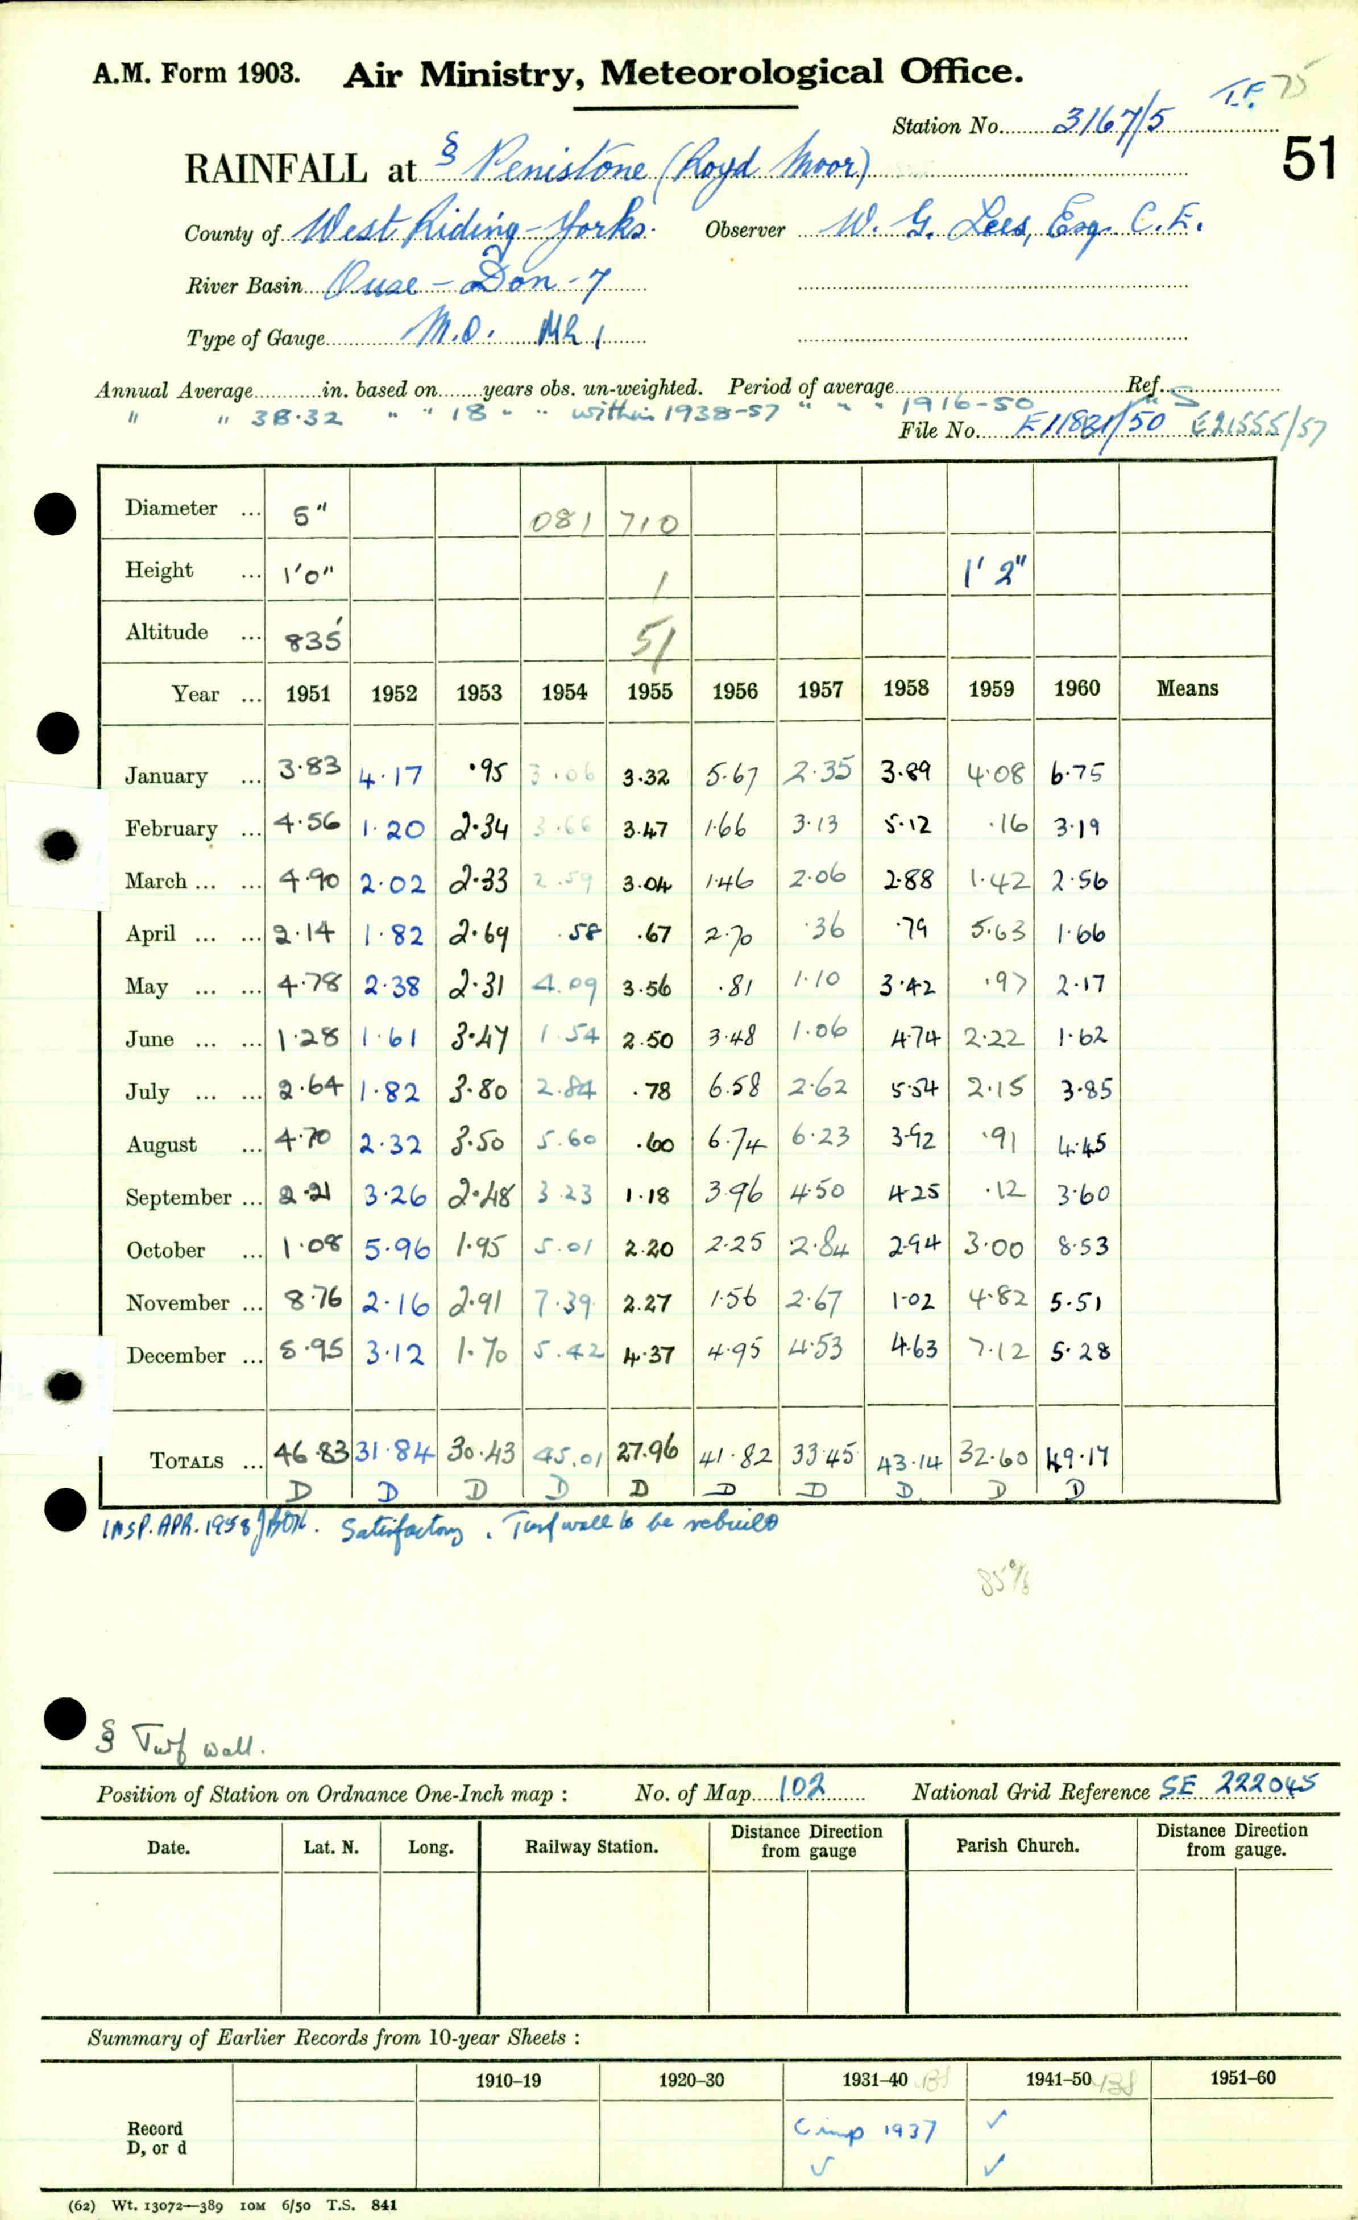 A.M. Form 1903. Air Ministry, Meteorological Office.
T.F. 75
Station No. 3167/5
51
RAINFALL at § Penistone (Royd Moor)
County of West Riding - Yorks. Observer W. G. Lees, Esq. C.E.
River Basin Ouse - Don - 7
Type of Gauge M.O. Mk 1
Annual Average in. based on years obs. un-weighted. Period of average Ref.
" " 38.32 " " 18 " " within 1938-57 " " " 1916-50
File No. E11821/50 E21555/57
Diameter ... 5" 081 710
Height ... 1'0" 1 1' 2"
Altitude ... 835' 51
Year ... 1951 1952 1953 1954 1955 1956 1957 1958 1959 1960 Means
January ... 3.83 4.17 .95 3.06 3.32 5.67 2.35 3.89 4.08 6.75
February ... 4.56 1.20 2.34 3.66 3.47 1.66 3.13 5.12 .16 3.19
March ... ... 4.90 2.02 2.33 2.59 3.04 1.46 2.06 2.88 1.42 2.56
April ... ... 2.14 1.82 2.69 .58 .67 2.70 .36 .79 5.63 1.66
May ... ... 4.78 2.38 2.31 4.09 3.56 .81 1.10 3.42 .97 2.17
June ... ... 1.28 1.61 3.47 1.54 2.50 3.48 1.06 4.74 2.22 1.62
July ... ... 2.64 1.82 3.80 2.84 .78 6.58 2.62 5.54 2.15 3.85
August ... 4.70 2.32 3.50 5.60 .60 6.74 6.23 3.92 .91 4.45
September ... 2.21 3.26 2.48 3.23 1.18 3.96 4.50 4.25 .12 3.60
October ... 1.08 5.96 1.95 5.01 2.20 2.25 2.84 2.94 3.00 8.53
November ... 8.76 2.16 2.91 7.39 2.27 1.56 2.67 1.02 4.82 5.51
December ... 5.95 3.12 1.70 5.42 4.37 4.95 4.53 4.63 7.12 5.28
TOTALS ... 46.83 31.84 30.43 45.01 27.96 41.82 33.45 43.14 32.60 49.17
D D D D D D D D D D
INSP. APR. 1958 Satisfactory. Turf wall to be rebuilt
85%
§ Turf wall.
Position of Station on Ordnance One-Inch map : No. of Map 102 National Grid Reference SE 222045
Date. Lat. N. Long. Railway Station. Distance Direction from gauge Parish Church. Distance Direction from gauge.
Summary of Earlier Records from 10-year Sheets :
1910–19 1920–30 1931–40 1941–50 1951–60
Record Comp 1937 ✓
D, or d ✓ ✓
(62) Wt. 13072—389 10M 6/50 T.S. 841